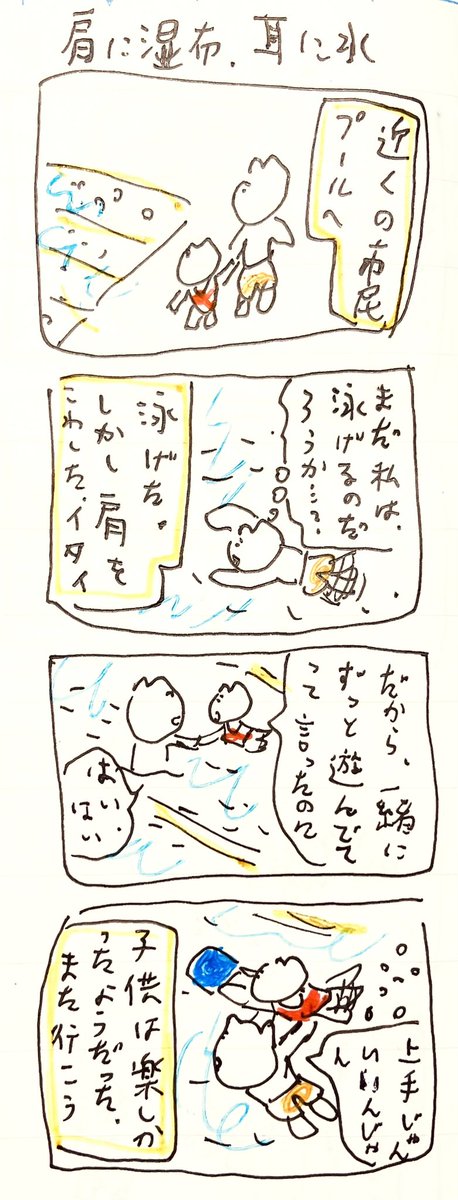 肩に湿布、耳に水
近くの市民
プールへ
まだ私は、
泳げるのだ
ろうか…?
泳げた。
しかし肩を
こわした、イタイ
だから、一緒に
ずっと遊んでて
って言ったのに
はい、
はい
上手じゃん
いいんじゃ
ん
子供は楽しか
ったようだった、
また行こう